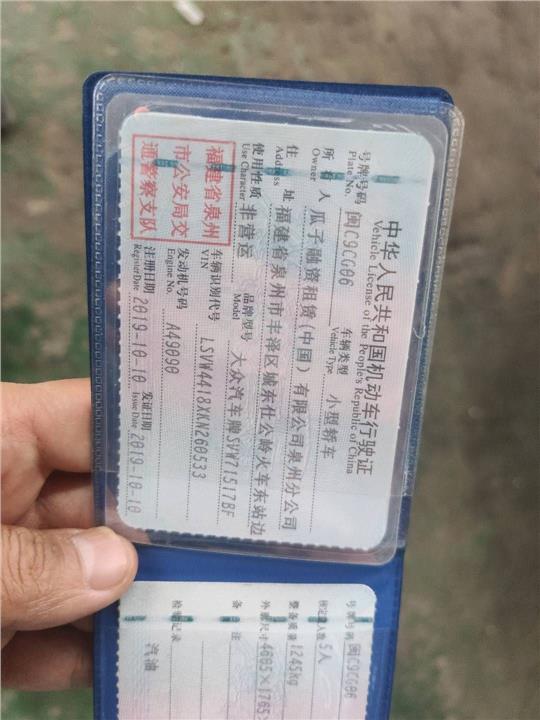 中华人民共和国机动车行驶证
Vehicle License of the People's Republic of China
号牌号码 闽C9CG06 车辆类型 小型轿车
Plate No. Vehicle Type
所有人 瓜子融资租赁(中国)有限公司泉州分公司
Owner
住址 福建省泉州市丰泽区城东仕公岭火车东站边
Address
使用性质 非营运 品牌型号 大众汽车牌SVW71517BF
Use Character Model
福建省泉州
市公安局交
通警察支队
车辆识别代号 LSVW4418XKN260533
VIN
发动机号码 A49090
Engine No.
注册日期 2019-10-10 发证日期 2019-10-10
Register Date Issue Date
号牌号码 闽C9CG06
核定人数 5人
整备质量 1245kg
外廓尺寸 4605×1765
备注
检验记录 汽油